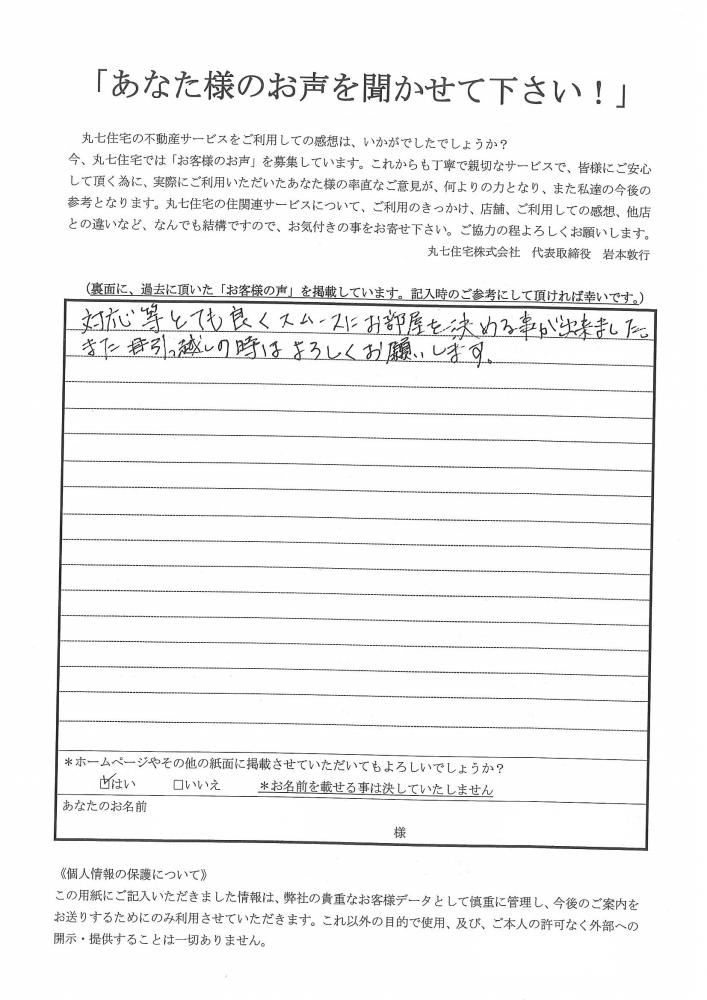 「あなた様のお声を聞かせて下さい！」
丸七住宅の不動産サービスをご利用しての感想は、いかがでしたでしょうか？
今、丸七住宅では「お客様のお声」を募集しています。これからも丁寧で親切なサービスで、皆様にご安心
して頂く為に、実際にご利用いただいたあなた様の率直なご意見が、何よりの力となり、また私達の今後の
参考となります。丸七住宅の住関連サービスについて、ご利用のきっかけ、店舗、ご利用しての感想、他店
との違いなど、なんでも結構ですので、お気付きの事をお寄せ下さい。ご協力の程よろしくお願いします。
丸七住宅株式会社　代表取締役　岩本敦行
（裏面に、過去に頂いた「お客様の声」を掲載しています。記入時のご参考にして頂ければ幸いです。）
対応等とても良くスムースにお部屋を決める事が出来ました。
また引っ越しの時はよろしくお願いします。
＊ホームページやその他の紙面に掲載させていただいてもよろしいでしょうか？
☑はい　□いいえ　＊お名前を載せる事は決していたしません
あなたのお名前
様
《個人情報の保護について》
この用紙にご記入いただきました情報は、弊社の貴重なお客様データとして慎重に管理し、今後のご案内を
お送りするためにのみ利用させていただきます。これ以外の目的で使用、及び、ご本人の許可なく外部への
開示・提供することは一切ありません。